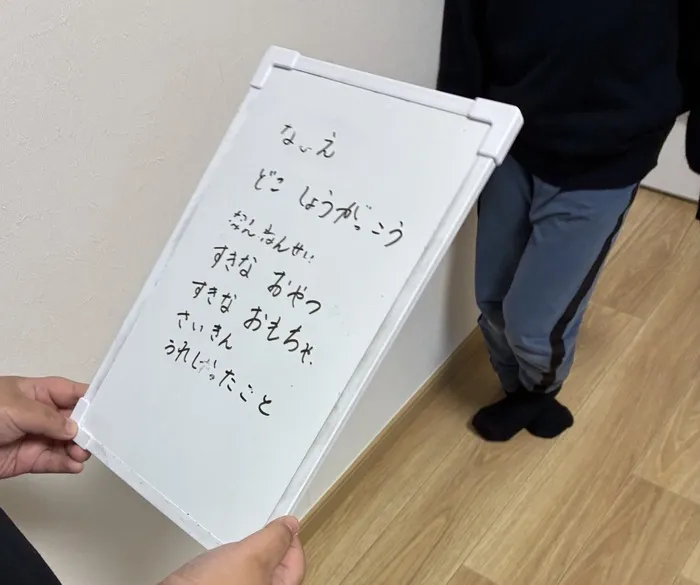 なまえ
どこ しょうがっこう
なんねんせい
すきな おやつ
すきな おもちゃ
さいきん
うれしかったこと